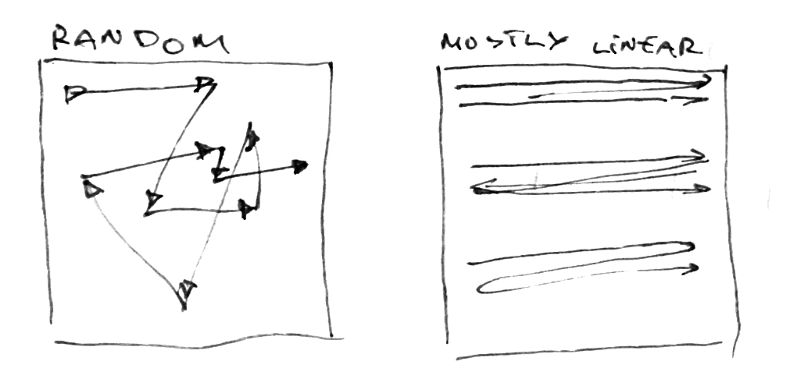 RANDOM
MOSTLY LINEAR